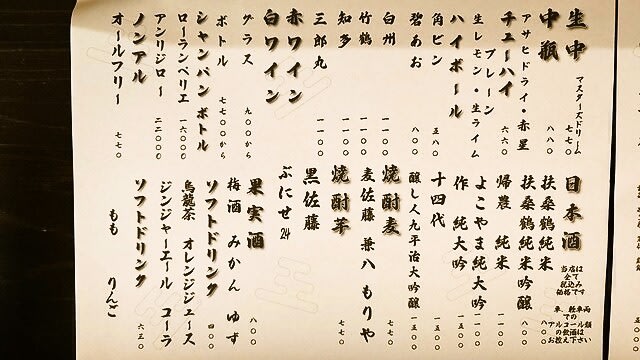 生中 マスターズドリーム 七七〇
中瓶 八八〇
アサヒドライ・赤星
チューハイ 六六〇
プレーン
生レモン・生ライム
ハイボール
角ビン 五八〇
碧あお 八〇〇
白州 一一〇〇
竹鶴 一一〇〇
知多 一一〇〇
三郎丸 一一〇〇
赤ワイン
白ワイン
グラス 九〇〇から
ボトル 七七〇〇から
シャンパンボトル
ローランペリエ 一六〇〇〇
アンリジロー 二二〇〇〇
ノンアル
オールフリー 七七〇
日本酒
当店は
全て
税込み
価格です
車、軽車両
での
アルコール類
の飲酒は
お控え下さい
扶桑鶴純米 八〇〇
扶桑鶴純米吟醸 一一〇〇
帰農 純米 一一〇〇
よこやま純大吟 一一〇〇
作 純大吟 一五〇〇
十四代 一五〇〇
醸し人九平治大吟醸 一五〇〇
焼酎麦
麦佐藤 兼八 もりや 七七〇
焼酎芋 七七〇
黒佐藤
ぶにせ24
果実酒 八〇〇
梅酒 みかん ゆず
ソフトドリンク 四〇〇
烏龍茶 オレンジジュース
ジンジャーエール コーラ
ソフトドリンク 六五〇
もも りんご